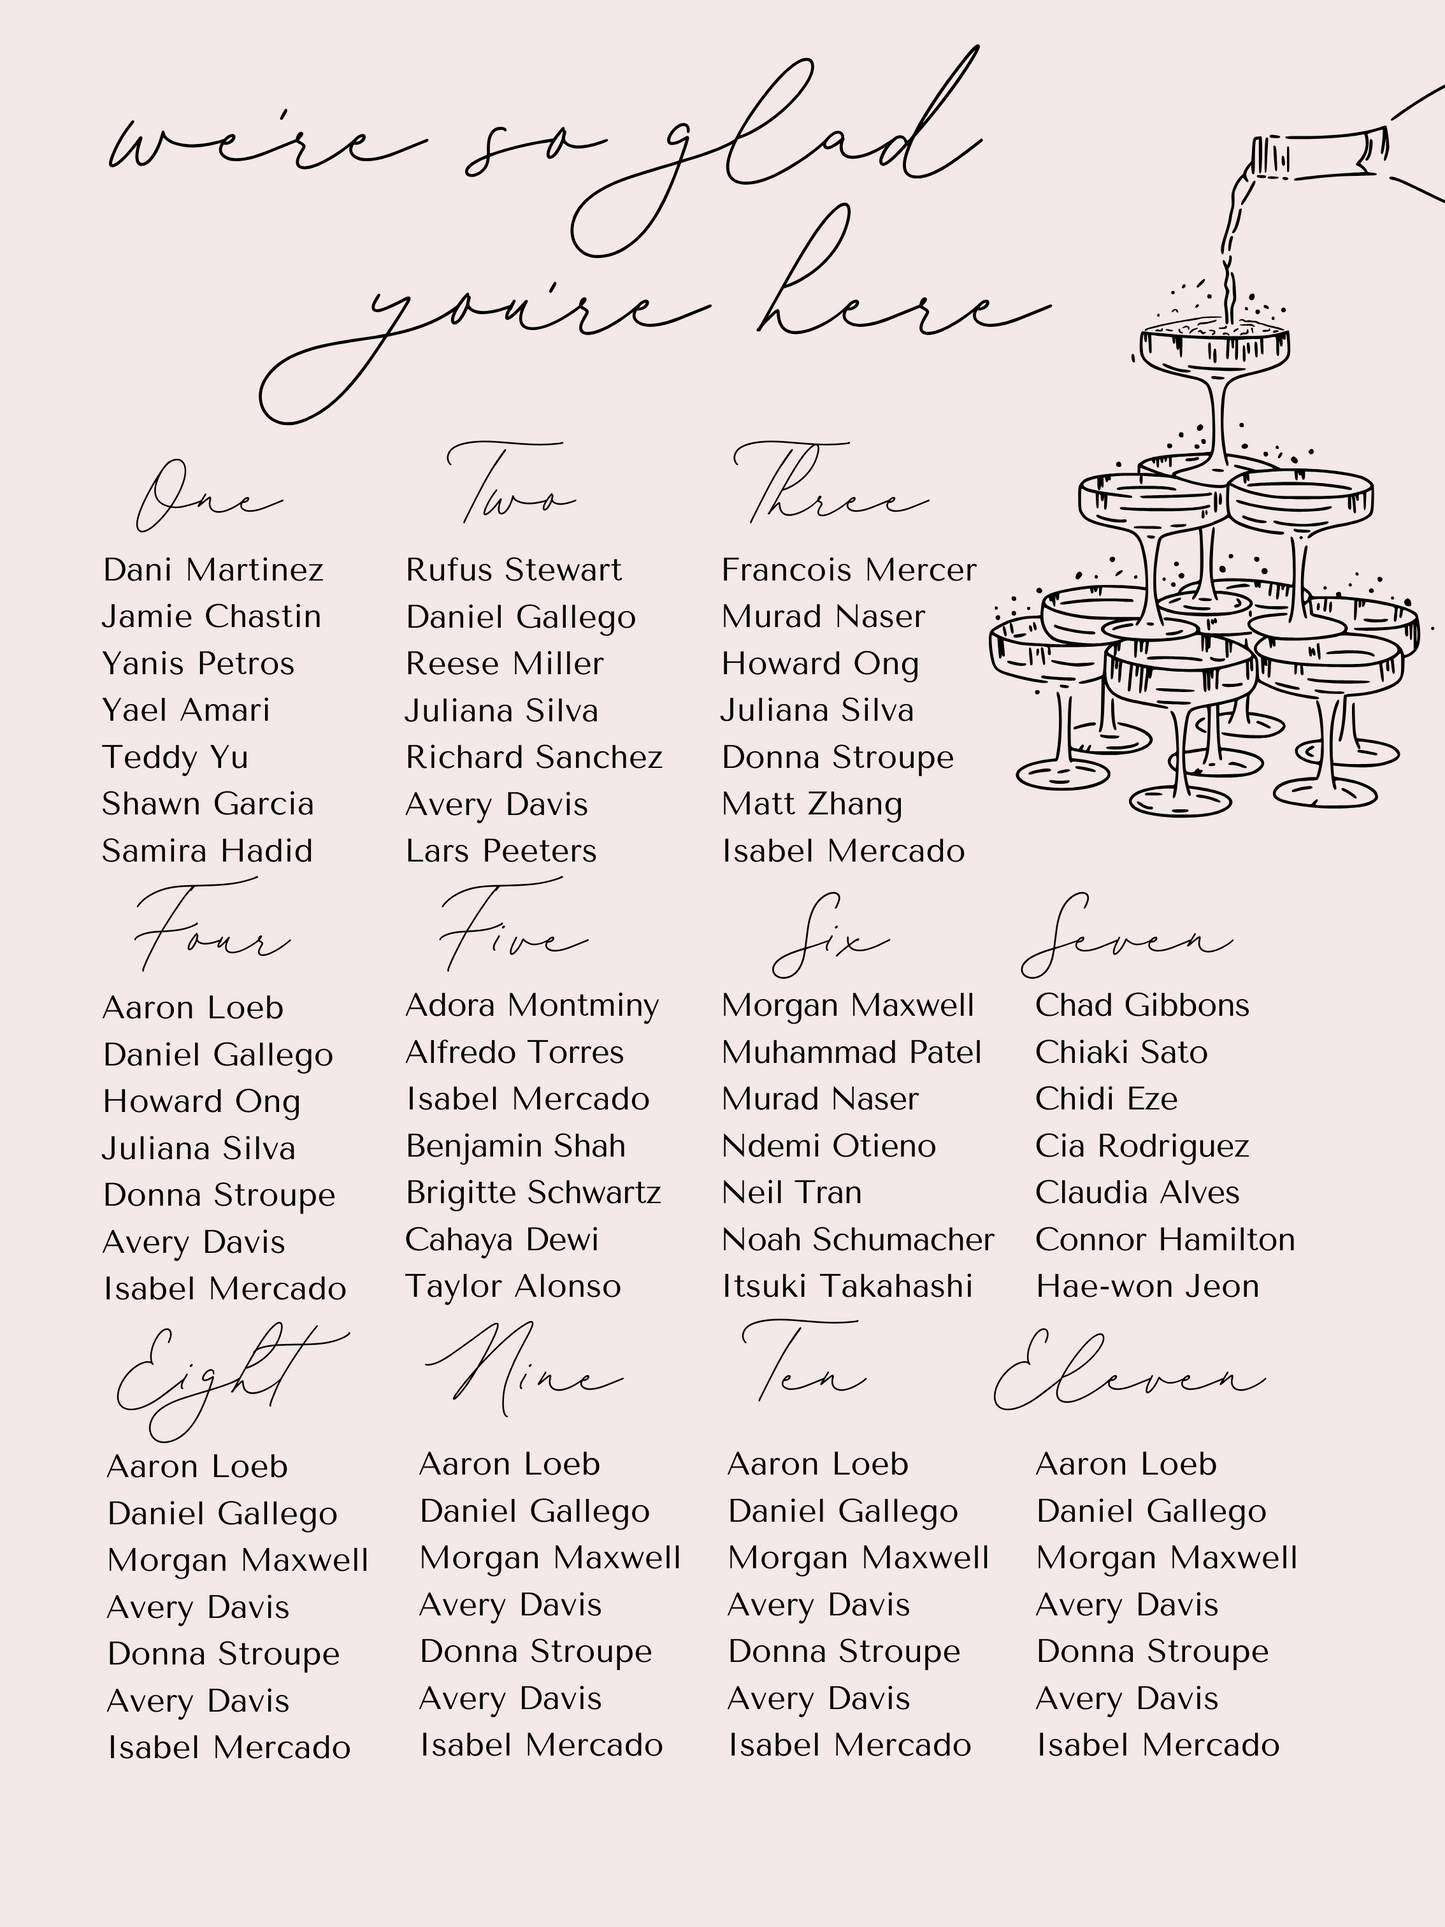 we're so glad
you're here
One
Dani Martinez
Jamie Chastin
Yanis Petros
Yael Amari
Teddy Yu
Shawn Garcia
Samira Hadid
Two
Rufus Stewart
Daniel Gallego
Reese Miller
Juliana Silva
Richard Sanchez
Avery Davis
Lars Peeters
Three
Francois Mercer
Murad Naser
Howard Ong
Juliana Silva
Donna Stroupe
Matt Zhang
Isabel Mercado
Four
Aaron Loeb
Daniel Gallego
Howard Ong
Juliana Silva
Donna Stroupe
Avery Davis
Isabel Mercado
Five
Adora Montminy
Alfredo Torres
Isabel Mercado
Benjamin Shah
Brigitte Schwartz
Cahaya Dewi
Taylor Alonso
Six
Morgan Maxwell
Muhammad Patel
Murad Naser
Ndemi Otieno
Neil Tran
Noah Schumacher
Itsuki Takahashi
Seven
Chad Gibbons
Chiaki Sato
Chidi Eze
Cia Rodriguez
Claudia Alves
Connor Hamilton
Hae-won Jeon
Eight
Aaron Loeb
Daniel Gallego
Morgan Maxwell
Avery Davis
Donna Stroupe
Avery Davis
Isabel Mercado
Nine
Aaron Loeb
Daniel Gallego
Morgan Maxwell
Avery Davis
Donna Stroupe
Avery Davis
Isabel Mercado
Ten
Aaron Loeb
Daniel Gallego
Morgan Maxwell
Avery Davis
Donna Stroupe
Avery Davis
Isabel Mercado
Eleven
Aaron Loeb
Daniel Gallego
Morgan Maxwell
Avery Davis
Donna Stroupe
Avery Davis
Isabel Mercado